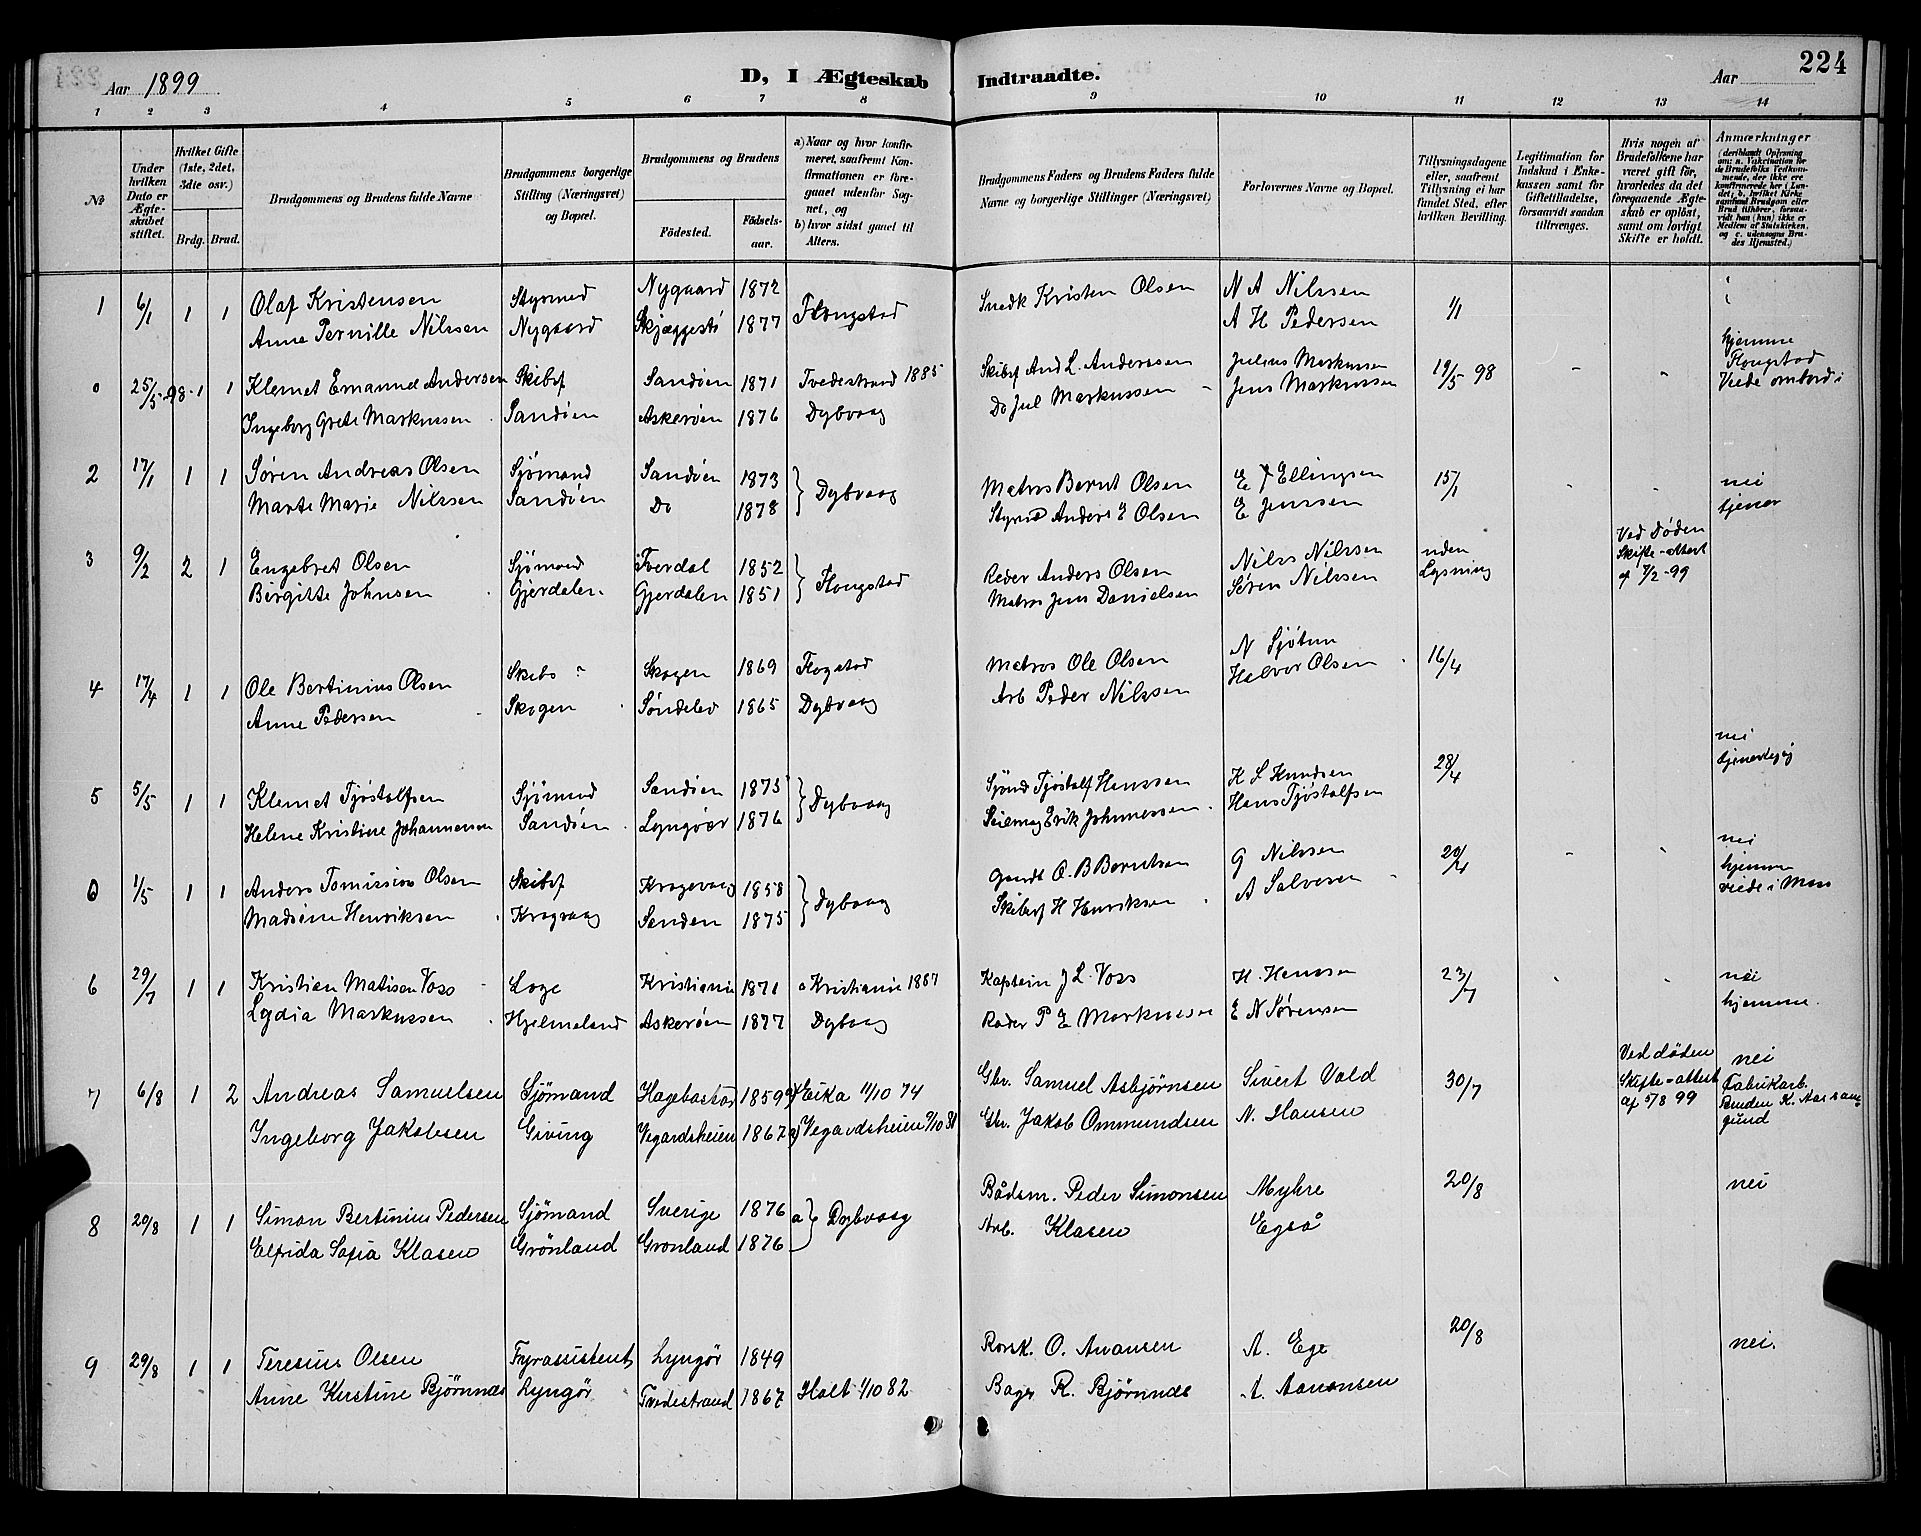 224
Aar 1899
D, I Ægteskab Indtraadte.
Aar
1 2 3 4 5 6 7 8 9 10 11 12 13 14
No
Under hvilken Dato er Ægteskabet stiftet.
Hvilket Gifte (1ste, 2det, 3die osv.)
Brdg. Brud.
Brudgommens og Brudens fulde Navne
Brudgommens borgerlige Stilling (Næringsvei) og Bopæl.
Brudgommens og Brudens
Fødested. Fødselsaar.
a) Naar og hvor konfirmeret, saafremt Konfirmationen er foregaaet udenfor Sognet, og
b) hvor sidst gaaet til Alters.
Brudgommens Faders og Brudens Faders fulde Navne og borgerlige Stillinger (Næringsvei)
Forlovernes Navne og Bopæl.
Tillysningsdagene eller, saafremt Tillysning ei har fundet Sted, efter hvilken Bevilling.
Legitimation for Indskud i Enkekassen samt for Giftetilladelse, forsaavidt saadan tiltrænges.
Hvis nogen af Brudefolkene har været gift før, hvorledes da det foregaaende Ægteskab er opløst, samt om lovligt Skifte er holdt.
Anmærkninger
1 6/1 1 1 Olaf Kristensen Styrmd Nygaard 1872 Flougstad Snedk Kristen Olsen N A Nilssen 1/1
Anne Pernille Nilssen Nygaard Skjæggestö 1877 A H Pedersen
hjemme
Flougstad
0 25/5-98 1 1 Klemet Emanuel Andersen Skibsf Sandöen 1871 Tvedestrand 1885 Skibsf And L. Anderssen Julius Markussen 19/5 98 Viede ombord i
Ingeborg Grete Markussen Sandöen Askeröen 1876 Dybvaag Do Jul Markussen Jens Markussen
2 17/1 1 1 Sören Andreas Olsen Sjömand Sandöen 1873 Dybvaag Matros Bernt Olsen E J Ellingsen 15/1 nei
Marte Marie Nilssen Sandöen Do 1878 Styrmd Anders E Olsen E Jenssen tjener
3 9/2 2 1 Engebret Olsen Sjömand Tverdal 1852 Flougstad Reder Anders Olsen Nils Nilssen uden Lysning Ved Döden Skifte-attest af 7/2-99
Birgitte Johnsen Gjerdalen Gjerdalen 1851 Matros Jens Danielsen Sören Nilssen
4 17/4 1 1 Ole Bertinius Olsen Skibs Skogen 1869 Flogstad Matros Ole Olsen N Sjötun 16/4
Anne Pedersen Skogen Söndelev 1865 Dybvaag Arb Peder Nilssen Halvor Olsen
nei
5 5/5 1 1 Klemet Tjöstolfsen Sjömand Sandöen 1875 Dybvaag Sjömd Tjöstolf Hanssen K S Knudsen 28/4
Helene Kristine Johannessen Sandöen Lyngöer 1876 Erik Johannessen Hans Tjöstolfsen
nei
0 1/5 1 1 Anders Olsen Skibsf Kragevaag 1858 Dybvaag O. B Berntsen G Nilssen 20/4 hjemme
Madsine Henriksen Kragvaag Sanden 1875 Skibsf H Henriksen A Salvesen viede i Moss
6 29/7 1 1 Kristian Matisen Voss Loge Kristiania 1871 a Kristiania 1887 Kaptein J L. Voss H. Hanssen 23/7 nei
Lydia Markussen Hjelmeland Askeröen 1877 Dybvaag Reder P E Markussen E N Sörensen hjemme.
7 6/8 1 2 Andreas Samuelsen Sjömand Hagebostad 1859 a) Eika 11/10 74 Gbr. Samuel Asbjørnsen Sivert Vold 30/7 Ved döden Skifte-attest af 5/8 99 nei Fabrikarb.
Ingeborg Jakobsen Giving Vegardsheien 1867 a) Vegardsheien 1/10 81 Gbr. Jakob Ommundsen N. Hansen
8 20/8 1 1 Simon Bertinius Pedersen Sjömand Sverige 1876 a Dybvaag Bådsm. Peder Simonsen Myhre 20/8 nei
Elfrida Sofia Klasen Grönland Grönland 1876 Arb. Klasen Egså
9 29/8 1 1 Teresius Olsen Fyrassistent Lyngör 1849 O. Anansen A. Ege 20/8 nei.
Anne Kirstine Bjørnnes Lyngör Tvedestrand 1867 Holt 1/10 82 Bager R. Bjørnnes A. Aanonsen